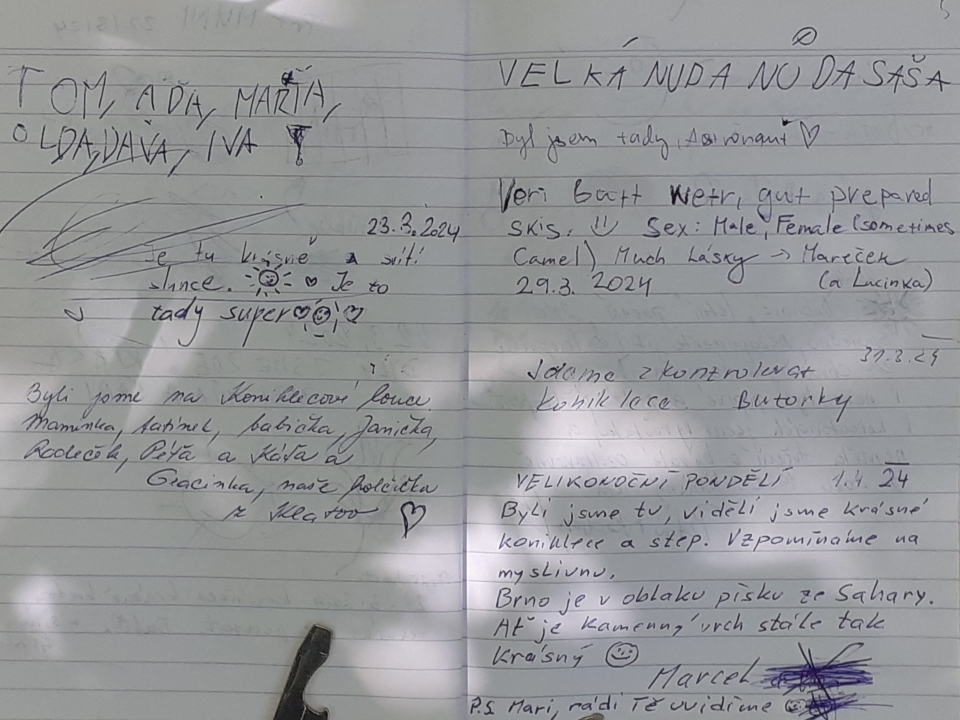 TOM, AĎA, MAŘÍA,
OLDA, DAŠA, IVA
23.3.2024
Je tu krásně a svítí
slunce. Je to
tady super
Byli jsme na Koniklecové louce
Maminka, tatínek, babička, Janička,
Radeček, Péťa a Káťa a
Gracinka, naše holčička
z Klatov
VELKÁ NUDA NUDA SAŠA
Byl jsem tady, Astronaut
Veri Batt Wetr, gut prepared
SKIS. Sex: Male, Female (sometimes
Camel) Much Lásky → Mareček
29.3. 2024 (a Lucinka)
31.3.24
Jdeme zkontrolovat
koniklece. Butorky
VELIKONOČNÍ PONDĚLÍ 1.4. 24
Byli jsme tu, viděli jsme krásné
koniklece a step. Vzpomínáme na
myslivnu.
Brno je v oblaku písku ze Sahary.
Ať je Kamenný vrch stále tak
krásný
Marcel
P.S. Mari, rádi Tě uvidíme